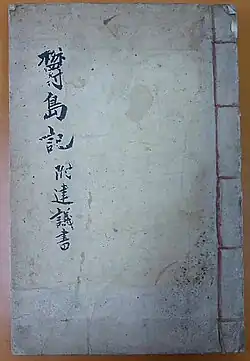 欝島記 附建議書